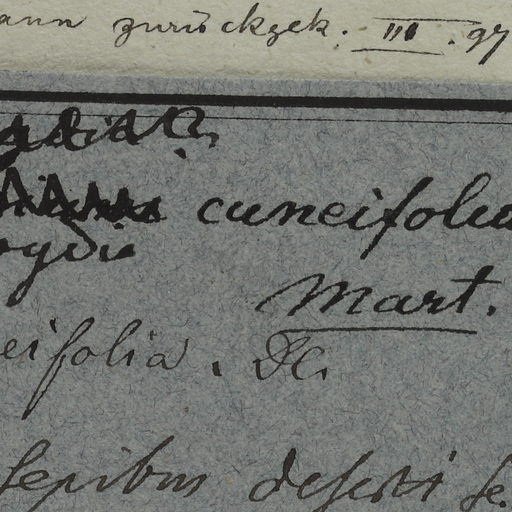 ann zurückgek. III. 97
cuneifolia
Mart.
eifolia. DC.
sepibus deserti